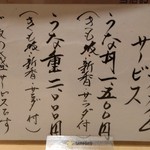 サービス
うな丼 一、五〇〇円
(きも吸・新香・サラダ付)
うな重 二、〇〇〇円
(きも吸・新香・サラダ付)
サービスです